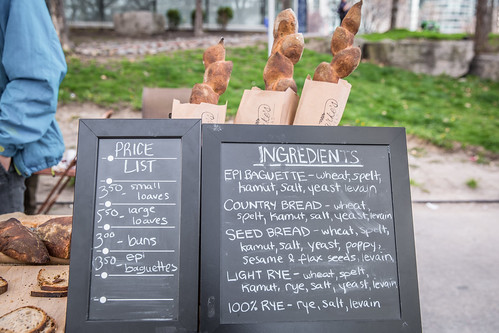 PRICE
LIST
3.50 - small
loaves
5.50 - large
loaves
3.00 - buns
3.50 - epi
baguettes
INGREDIENTS
EPI BAGUETTE - wheat, spelt,
kamut, salt, yeast, levain
COUNTRY BREAD - wheat,
spelt, kamut, salt, yeast, levain
SEED BREAD - wheat, spelt,
kamut, salt, yeast, poppy,
sesame & flax seeds, levain
LIGHT RYE - wheat, spelt,
kamut, rye, salt, yeast, levain
100% RYE - rye, salt, levain